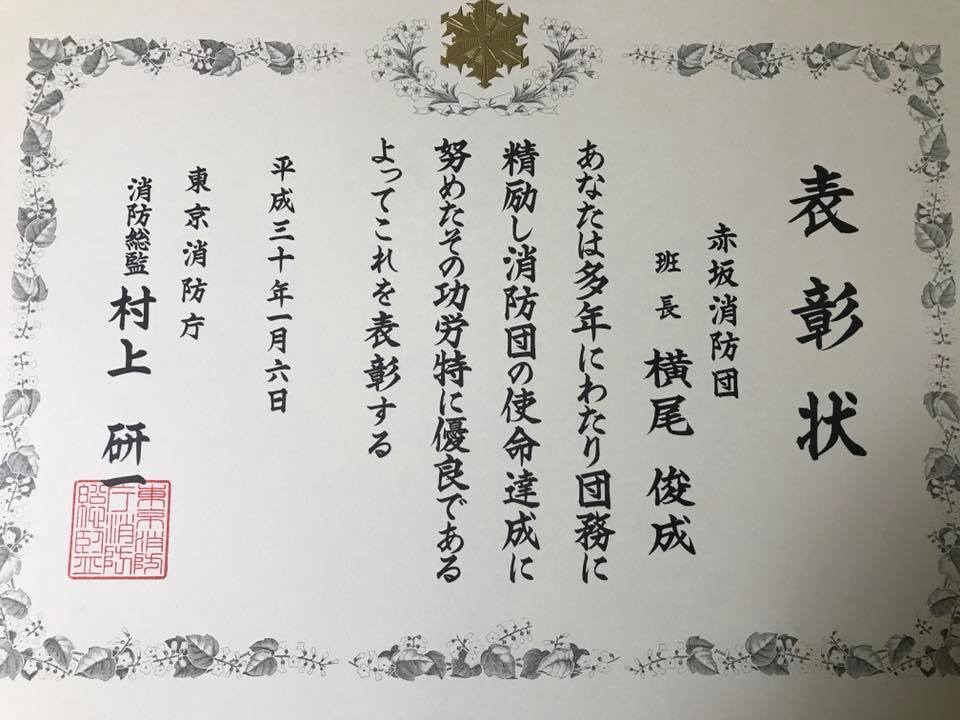 表彰状
赤坂消防団
班長 横尾 俊成
あなたは多年にわたり団務に
精励し消防団の使命達成に
努めたその功労特に優良である
よってこれを表彰する
平成三十年一月六日
東京消防庁
消防総監 村上 研一
東京消防
庁消防
総監